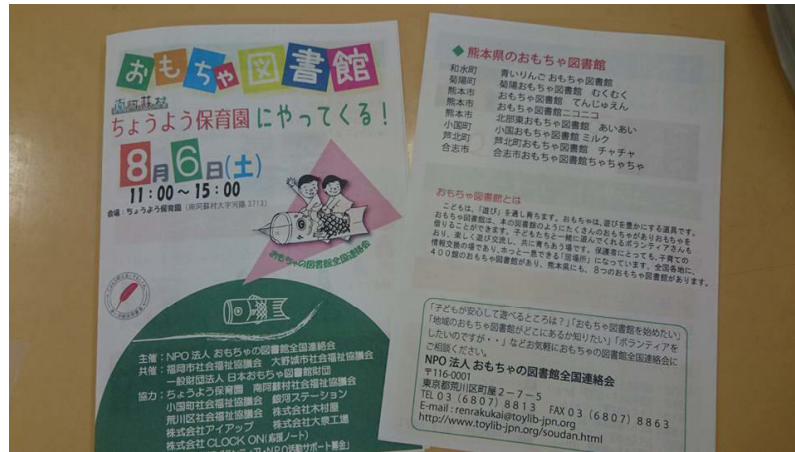 おもちゃ図書館
南阿蘇村
ちょうよう保育園にやってくる!
8月6日(土)
11:00〜15:00
会場:ちょうよう保育園(南阿蘇村大字河陽3713)
おもちゃの図書館全国連絡会
主催:NPO法人 おもちゃの図書館全国連絡会
共催:福岡市社会福祉協議会 大野城市社会福祉協議会
一般財団法人 日本おもちゃ図書館財団
協力:ちょうよう保育園 南阿蘇村社会福祉協議会
小国町社会福祉協議会 銀河ステーション
荒川区社会福祉協議会 株式会社木村屋
株式会社アイアップ 株式会社大泉工場
株式会社 CLOCK ON(応援ノート)
ボランティア・NPO活動サポート募金
◆ 熊本県のおもちゃ図書館
和水町 青いりんご おもちゃ図書館
菊陽町 菊陽おもちゃ図書館 むくむく
熊本市 おもちゃ図書館 てんじゅえん
熊本市 おもちゃ図書館ニコニコ
熊本市 北部東おもちゃ図書館 あいあい
小国町 小国おもちゃ図書館 ミルク
芦北町 芦北町おもちゃ図書館 チャチャ
合志市 合志市おもちゃ図書館ちゃちゃちゃ
おもちゃ図書館とは
こどもは、「遊び」を通し育ちます。おもちゃは、遊びを豊かにする道具です。
おもちゃ図書館は、本の図書館のようにたくさんのおもちゃがありおもちゃを
借りることができます。子どもたちと一緒に遊んでくれるボランティアさんも
おり、楽しく遊び交流し、共に育ちあう場です。保護者にとっても、子育ての
情報交換の場であり、ホッと一息できる「居場所」になっています。全国各地に、
400館のおもちゃ図書館があり、熊本県にも、8つのおもちゃ図書館があります。
「子どもが安心して遊べるところは?」「おもちゃ図書館を始めたい」
「地域のおもちゃ図書館がどこにあるか知りたい」「ボランティアを
したいのですが・・」などお気軽におもちゃの図書館全国連絡会に
ご相談ください。
NPO 法人 おもちゃの図書館全国連絡会
〒116-0001
東京都荒川区町屋2-7-5
TEL 03(6807)8813 FAX 03(6807)8863
E-mail:renrakukai@toylib-jpn.org
http://www.toylib-jpn.org/soudan.html